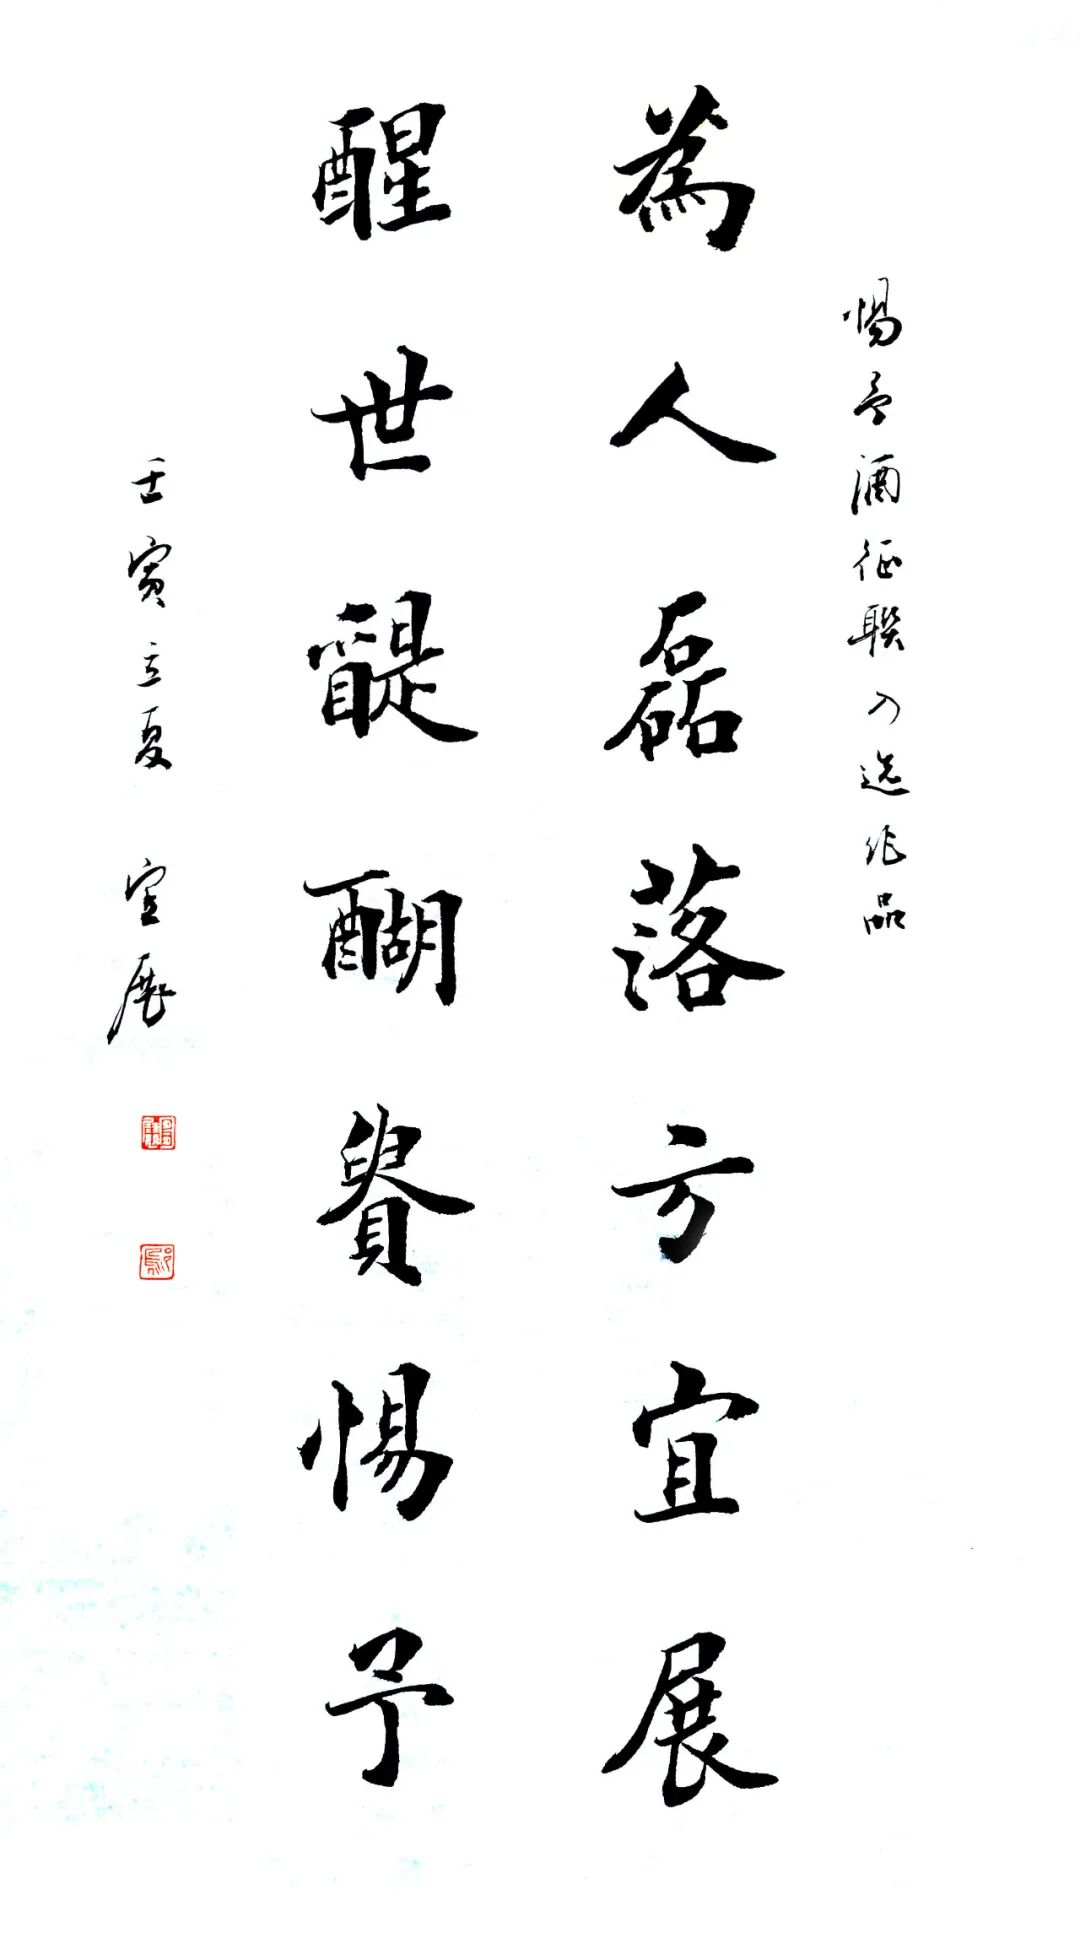 惕予酒征联入选作品
為人磊落方宜展
醒世醍醐惕予
壬寅立夏 宜展